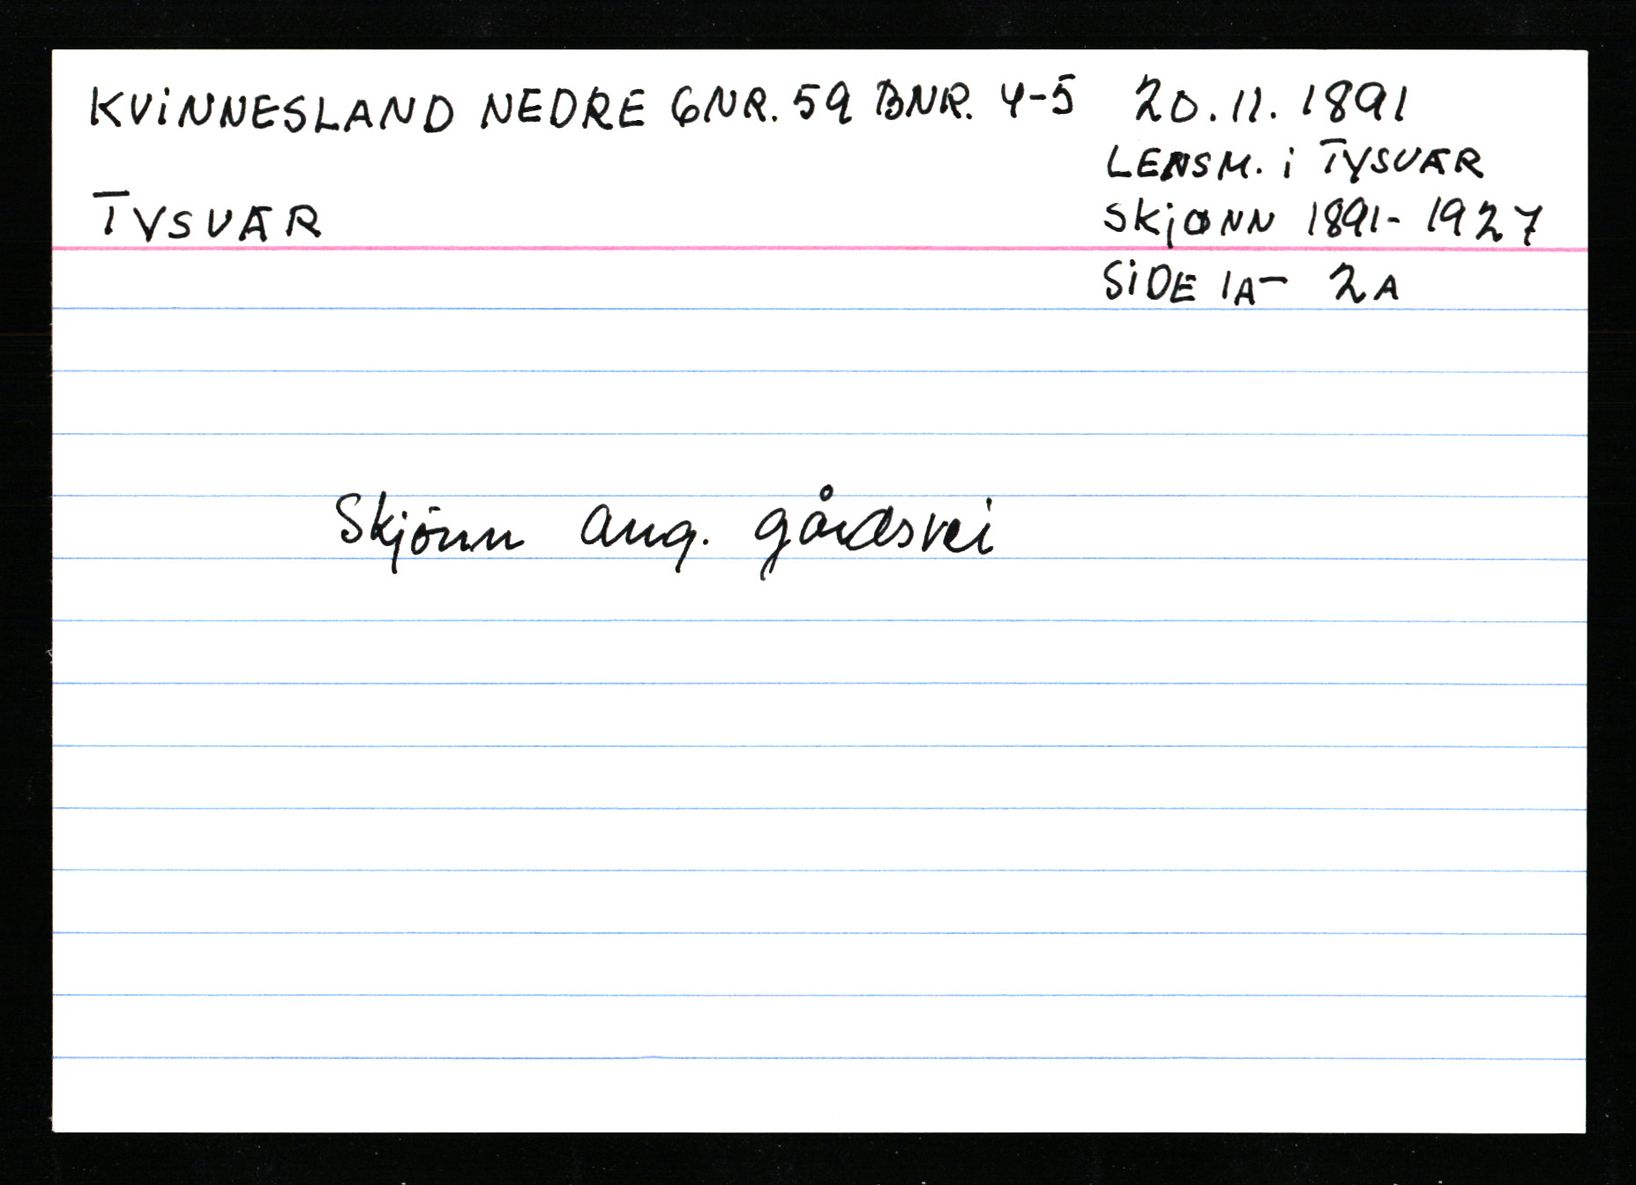 KVINNESLAND NEDRE GNR. 59 BNR. 4-5 20.11.1891
LENSM. i TYSVÆR
TYSVÆR
SKJØNN 1891-1927
SIDE 1A- 2A
Skjönn ang. gårdsvei